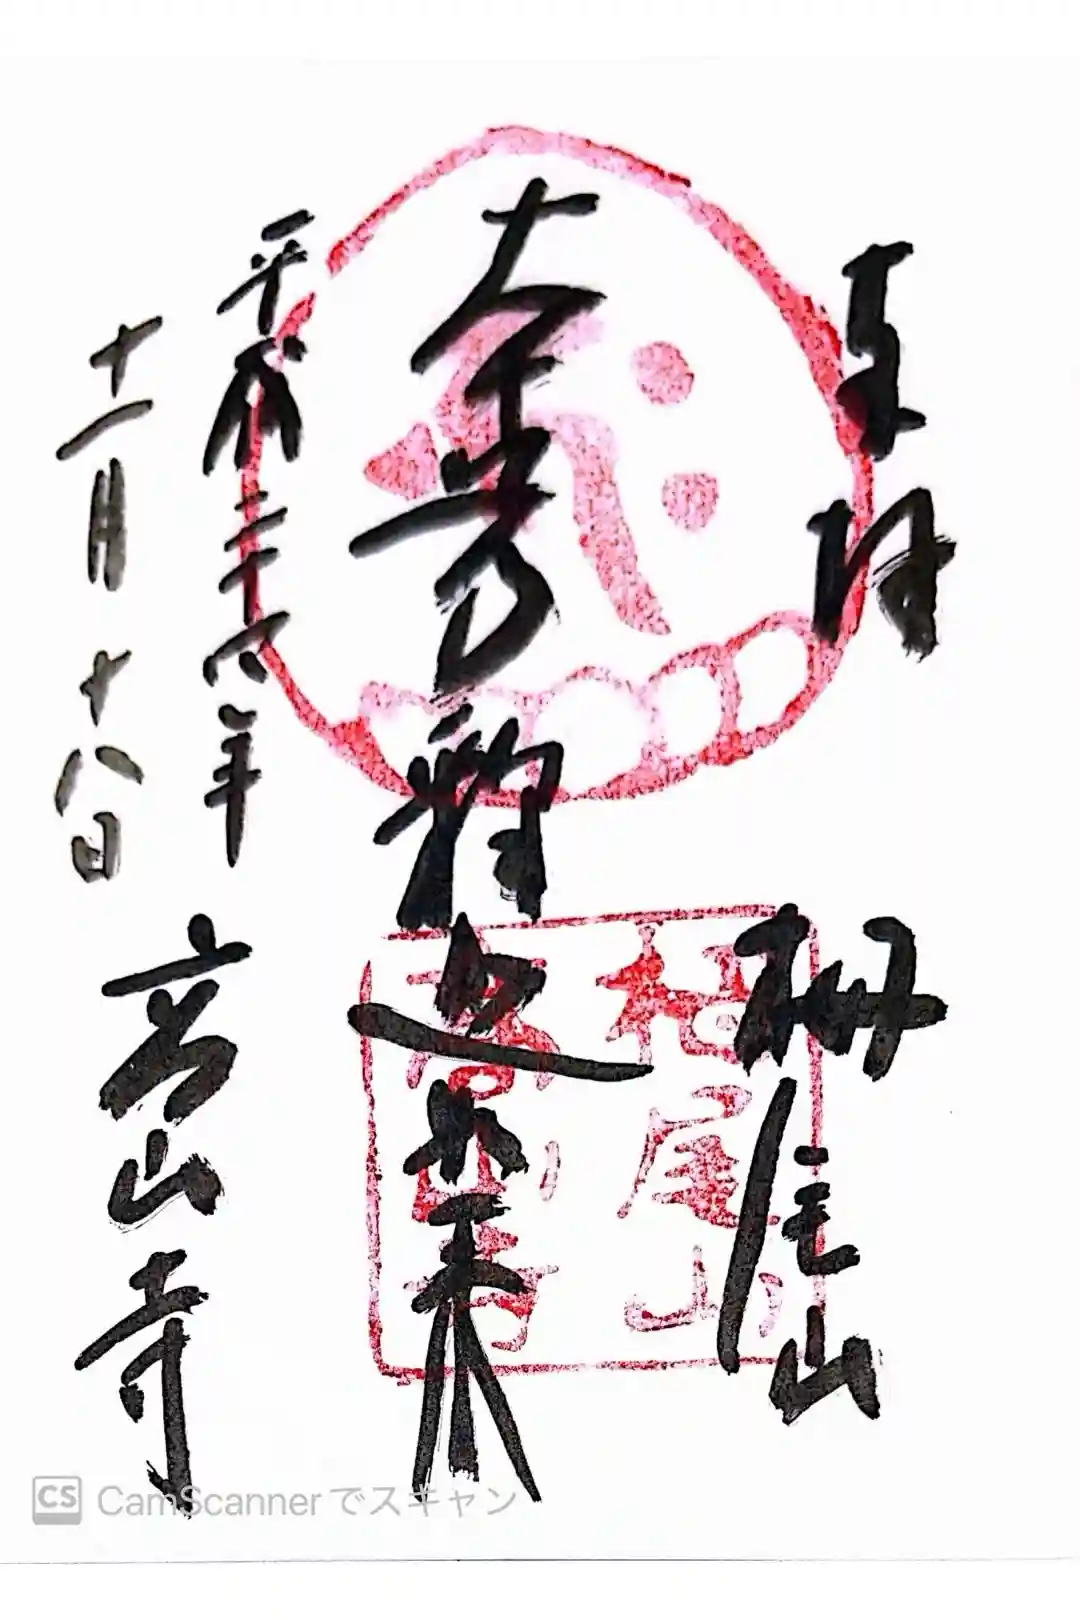 奉拝 栂尾山
釋迦如来
平成二十六年
十一月十八日
高山寺
栂尾山
高山寺
CS CamScannerでスキャン